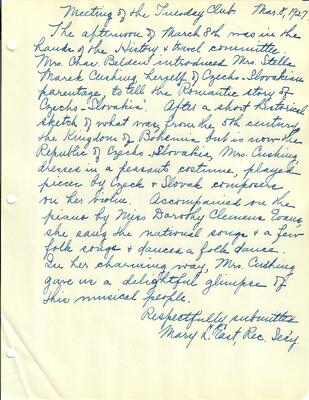 Meeting of the Tuesday Club. Mar. 8, 1927.
The afternoon of March 8th was in the
hands of the History & travel committee.
Mrs. Chas. Belden introduced Mrs. Stella
Marek Cushing, herself of Czecho-Slovakian
parentage, to tell the Romantic story of
Czecho-Slovakia. After a short historical
sketch of what was, from the 5th century,
the Kingdom of Bohemia but is now the
Republic of Czecho-Slovakia, Mrs. Cushing,
dressed in a peasants costume, played
pieces by Czech & Slovak composers
on her violin. Accompanied on the
piano by Miss Dorothy Clemens Evans,
she sang the national songs & a few
folk songs & danced a folk dance.
In her charming way, Mrs. Cushing
gave us a delightful glimpse of
this musical people.
Respectfully submitted
Mary L. East, Rec. Sec'y.